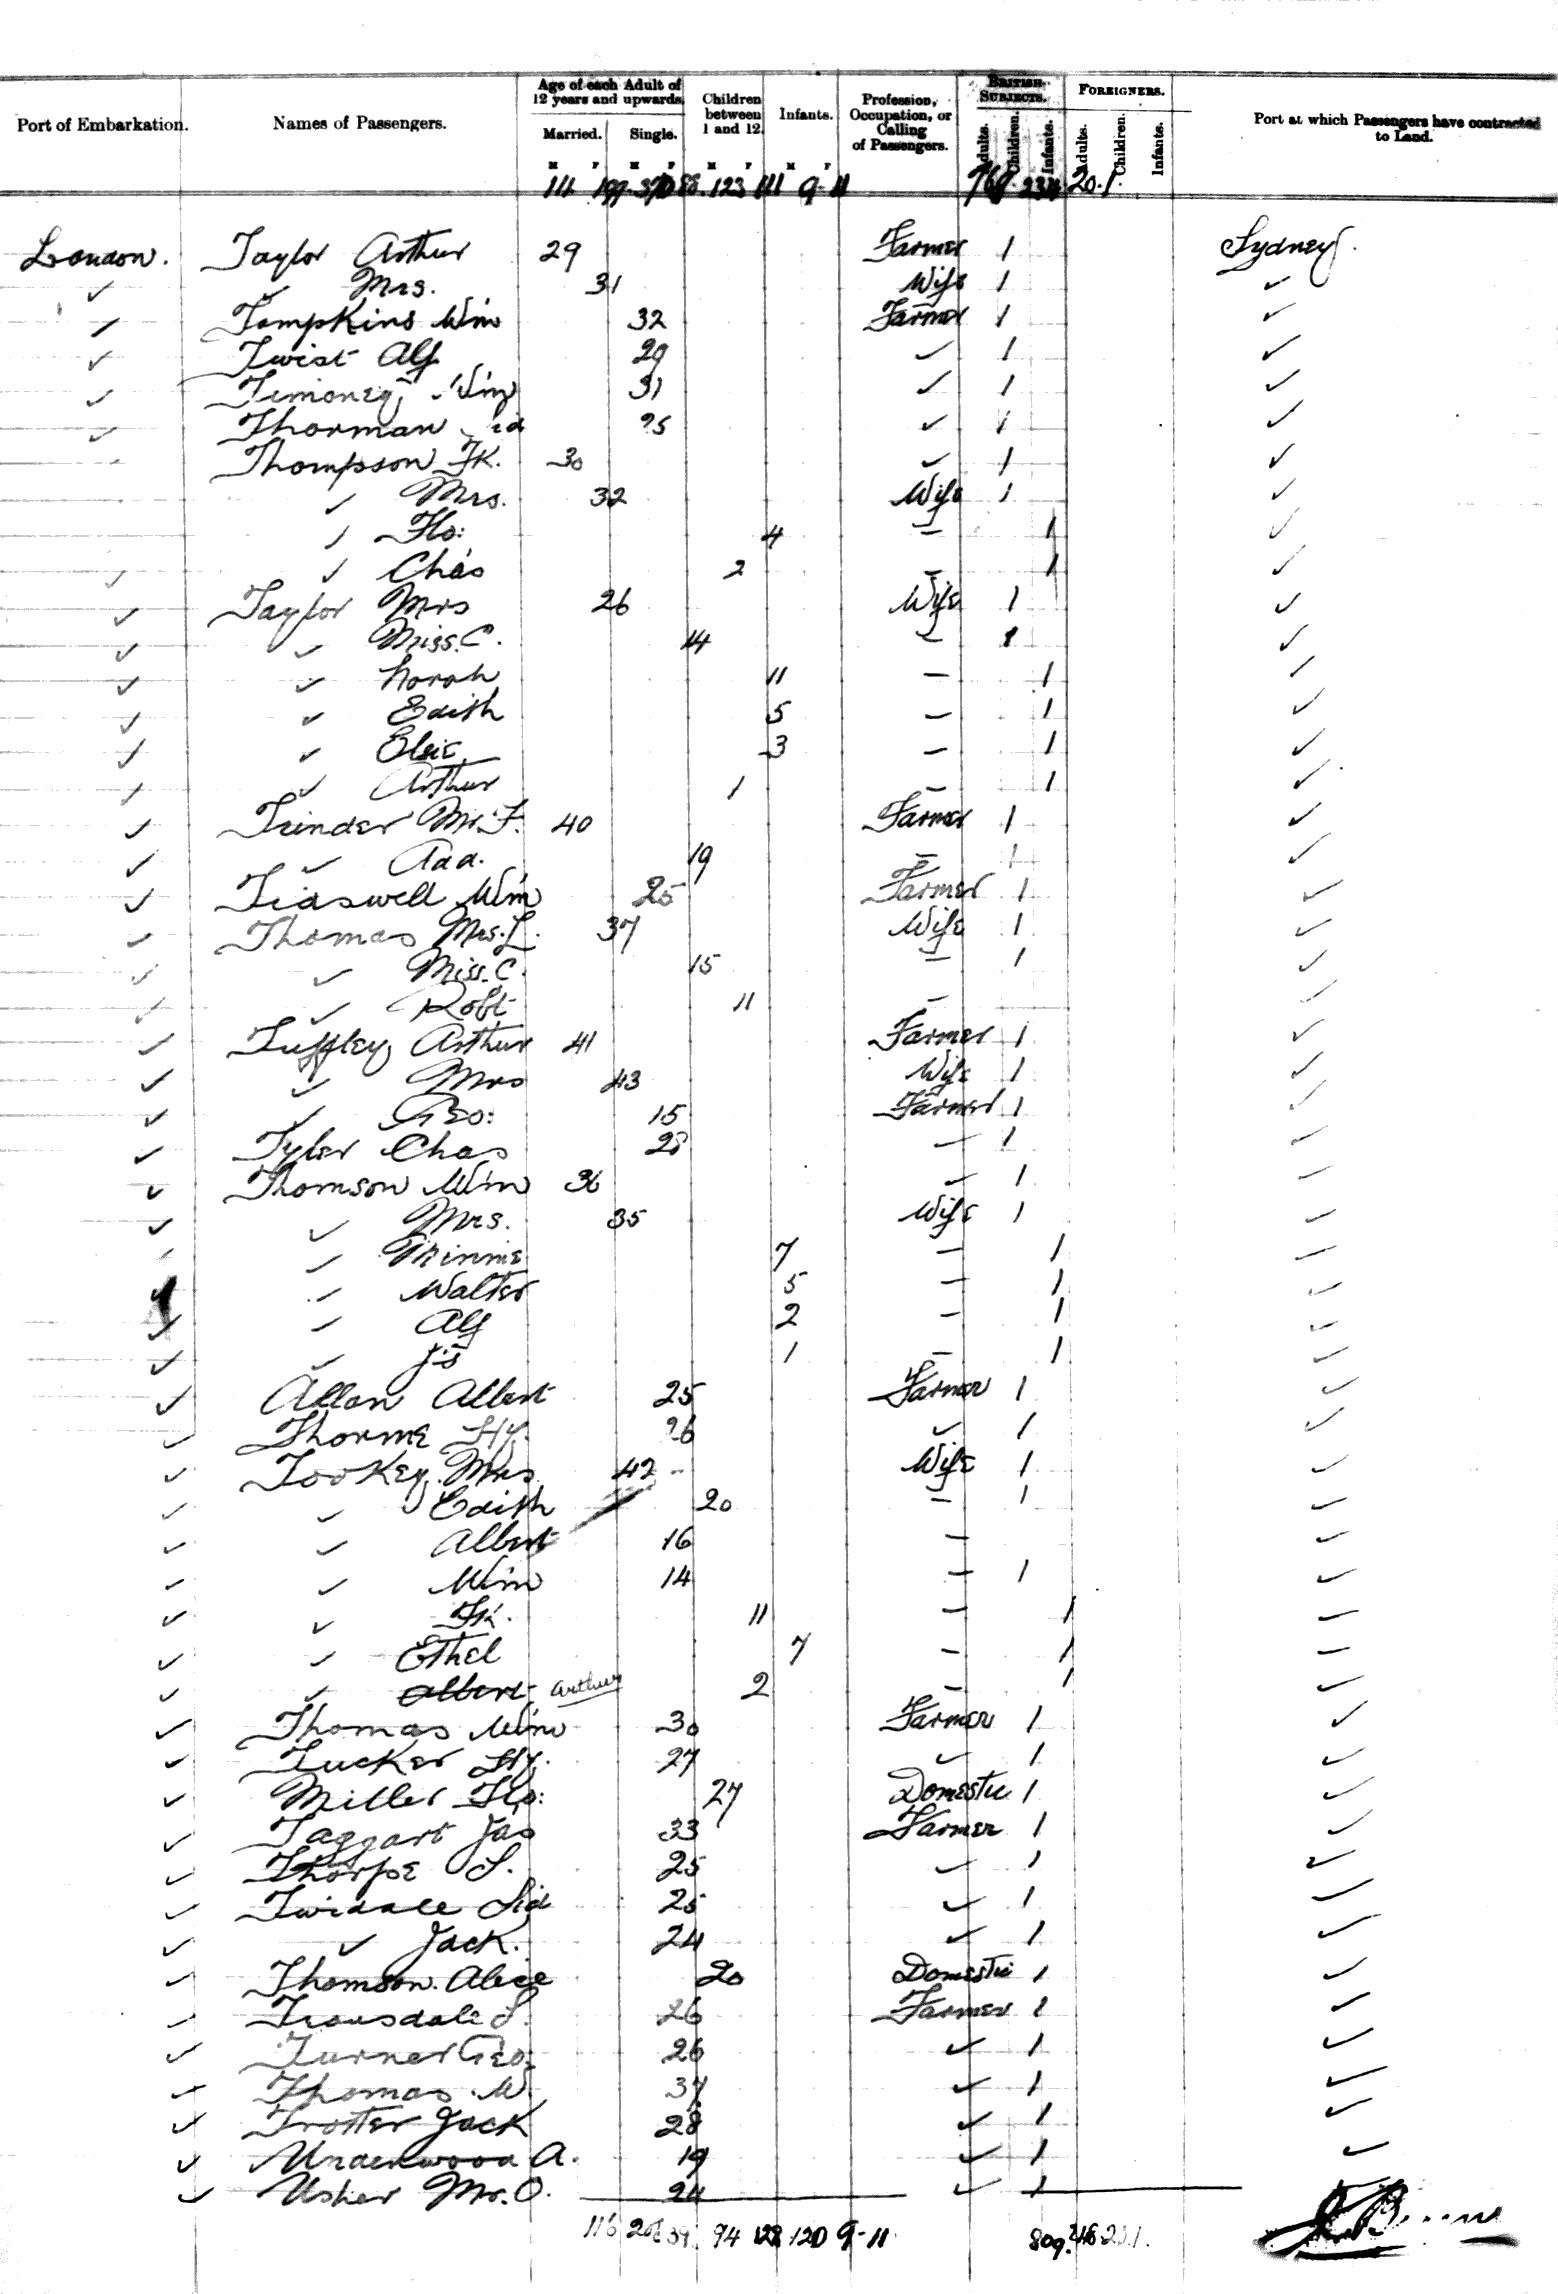 Port of Embarkation. Names of Passengers. Age of each Adult of 12 years and upwards. Married. Single. Children between 1 and 12. Infants. Profession, Occupation, or Calling of Passengers. BRITISH SUBJECTS. Adults. Children. Infants. FOREIGNERS. Adults. Children. Infants. Port at which Passengers have contracted to Land.
M F M F M F M F
111 199 370 88 123 111 9 - 11 768 234 20 . 1
London. Taylor Arthur 29 Farmer 1 Sydney.
✓ ✓ Mrs. 31 Wife 1 ✓
✓ Tompkins Wm 32 Farmer 1 ✓
✓ Twist Alf 29 ✓ 1 ✓
✓ Timoney Wm 31 ✓ 1 ✓
✓ Thorman Sid 25 ✓ 1 ✓
Thompson Fk. 30 ✓ 1 ✓
✓ Mrs. 32 Wife 1 ✓
✓ Flo: 4 – 1 ✓
✓ ✓ Chas 2 – 1 ✓
✓ Taylor Mrs 26 Wife 1 ✓
✓ ✓ Miss. C. 14 – 1 ✓
✓ ✓ Norah 11 – 1 ✓
✓ ✓ Edith 5 – 1 ✓
✓ ✓ Elsie 3 – 1 ✓
✓ ✓ Arthur 1 – 1 ✓
✓ Trinder Mr. F. 40 Farmer 1 ✓
✓ ✓ Ada. 19 – 1 ✓
✓ Tidswell Wm 25 Farmer 1 ✓
✓ Thomas Mrs. L. 37 Wife 1 ✓
✓ ✓ Miss. C. 15 – 1 ✓
✓ ✓ Robt 11 – ✓
✓ Tuffley Arthur 41 Farmer 1 ✓
✓ ✓ Mrs 43 Wife 1 ✓
✓ ✓ Geo: 15 Farmer 1 ✓
✓ Tyler Chas 28 – 1 ✓
✓ Thomson Wm 36 ✓ 1 ✓
✓ ✓ Mrs. 35 Wife 1 ✓
✓ ✓ Minnie 7 – 1 ✓
✓ ✓ Walter 5 – 1 ✓
✓ ✓ Alf 2 – 1 ✓
✓ ✓ Js 1 – 1 ✓
✓ Allan Albert 25 Farmer 1 ✓
✓ Thorme Hy. 26 ✓ 1 ✓
✓ Tookey Mrs 42 Wife 1 ✓
✓ ✓ Edith 20 – 1 ✓
✓ ✓ Albert 16 – ✓
✓ ✓ Wm 14 – 1 ✓
✓ ✓ Fk. 11 – 1 ✓
✓ ✓ Ethel 7 – 1 ✓
✓ ✓ Albert Arthur 2 – 1 ✓
✓ Thomas Wm 30 Farmer 1 ✓
✓ Tucker Hy. 27 ✓ 1 ✓
✓ Miller Flo: 27 Domestic 1 ✓
✓ Taggart Jas 33 Farmer 1 ✓
✓ Thorpe S. 25 ✓ 1 ✓
✓ Twidale Sid 25 ✓ 1 ✓
✓ ✓ Jack. 24 ✓ 1 ✓
✓ Thomson. Alice 20 Domestic 1 ✓
✓ Trousdale S. 26 Farmer 1 ✓
✓ Turner Geo. 26 ✓ 1 ✓
✓ Thomas. W. 37 ✓ 1 ✓
✓ Trotter Jack 28 ✓ 1 ✓
✓ Underwood A. 19 ✓ 1 ✓
✓ Usher Mr. O. 24 ✓ 1
116 94 128 120 9 - 11 809